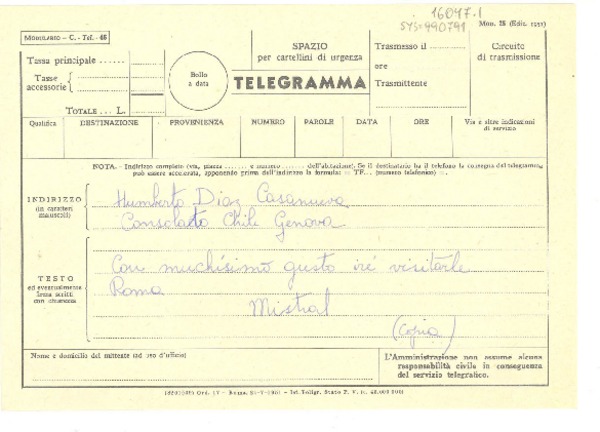 16047.1
SYS=990791
MODULARIO - C. - Tel. - 48
Mod. 28 (Ediz. 1951)
Tassa principale
Tasse accessorie
TOTALE .. L.
Bollo a data
SPAZIO
per cartellini di urgenza
TELEGRAMMA
Trasmesso il
ore
Trasmittente
Circuito
di trasmissione
Qualifica DESTINAZIONE PROVENIENZA NUMERO PAROLE DATA ORE Via e altre indicazioni di servizio
NOTA. - Indirizzo completo (via, piazza ........ e numero ........ dell'abitazione). Se il destinatario ha il telefono la consegna del telegramma
può essere accelerata, apponendo prima dell'indirizzo la formula: = TF... (numero telefonico) =.
INDIRIZZO
(in caratteri
maiuscoli)
Humberto Diaz Casanueva
Consolato Chile Genova
TESTO
ed eventualmente
firma scritti
con chiarezza
Con muchísimo gusto iré visitarle
Roma
Mistral
(Copia)
Nome e domicilio del mittente (ad uso d'ufficio)
L'Amministrazione non assume alcuna
responsabilità civile in conseguenza
del servizio telegrafico.